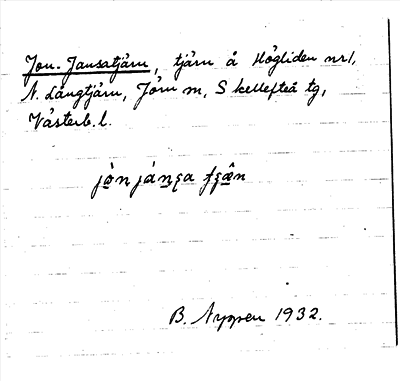 Jon-Jansatjärn, tjärn å Högliden nr 1,
N. Långtjärn, Jörn m, Skellefteå tg,
Västerb. l.
B. Nyppen 1932.